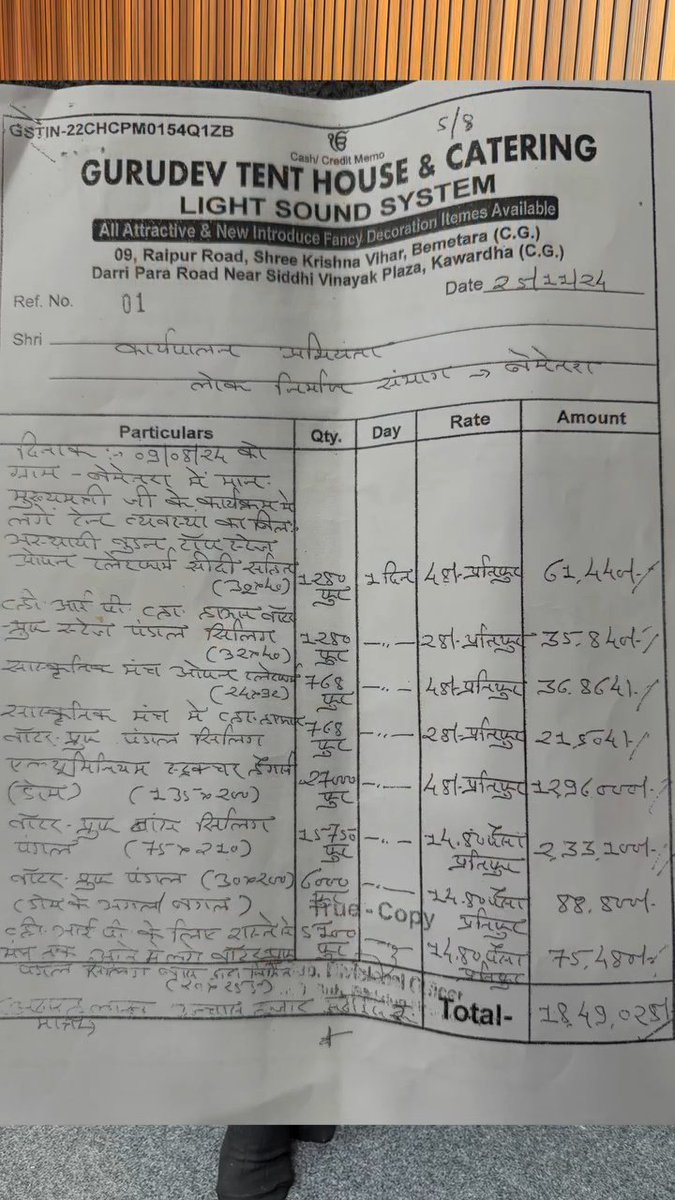 GSTIN-22CHCPM0154Q1ZB
5/8
ੴ
Cash/ Credit Memo
GURUDEV TENT HOUSE & CATERING
LIGHT SOUND SYSTEM
All Attractive & New Introduce Fancy Decoration Itemes Available
09, Raipur Road, Shree Krishna Vihar, Bemetara (C.G.)
Darri Para Road Near Siddhi Vinayak Plaza, Kawardha (C.G.)
Ref. No. 01 Date 25/11/24
Shri कार्यपालन अभियंता
लोक निर्माण संभाग → बेमेतरा
Particulars Qty. Day Rate Amount
दिनांक :- 09/08/24 को
ग्राम - बेमेतरा में मान.
मुख्यमंत्री जी के कार्यक्रम में
लगे टेन्ट व्यवस्था का बिल:
अस्थायी वुडन टॉप स्टेज
ओपन प्लेटफार्म सीढ़ी सहित
(30×40) 1280 फुट 1 दिन 48/- प्रतिफुट 61,440/-
व्ही. आई पी वाटर
प्रुफ स्टेज पंडाल सिलिंग
(32×40) 1280 फुट —..— 28/- प्रतिफुट 35.840/-
सांस्कृतिक मंच ओपन प्लेटफार्म
(24×32) 768 फुट —..— 48/- प्रतिफुट 36.864/-
सांस्कृतिक मंच में
वॉटर-प्रुफ पंडाल सिलिंग 768 फुट —..— 28/- प्रतिफुट 21,504/-
एल्यूमिनियम स्ट्रक्चर हैंगर
(डोम) (135×200) 27000 फुट —..— 48/- प्रतिफुट 1296000/-
वॉटर-प्रुफ सिलिंग
पंडाल (75×210) 15750 फुट —..— 14.80 पैसा प्रतिफुट 2,33,100/-
वॉटर-प्रुफ पंडाल (30×200)
(डोम के अगल बगल) 6000 —..— 14.80 पैसा प्रतिफुट 88.800/-
True - Copy
व्ही आई पी के लिए रास्ते से
मंच तक आने में लगे वॉटर प्रुफ
पंडाल सिलिंग 5100 फुट 14.80 पैसा प्रतिफुट 75,480/-
Officer
अठारह लाख उन्चास हजार
मात्र) Total- 18,49,028/-